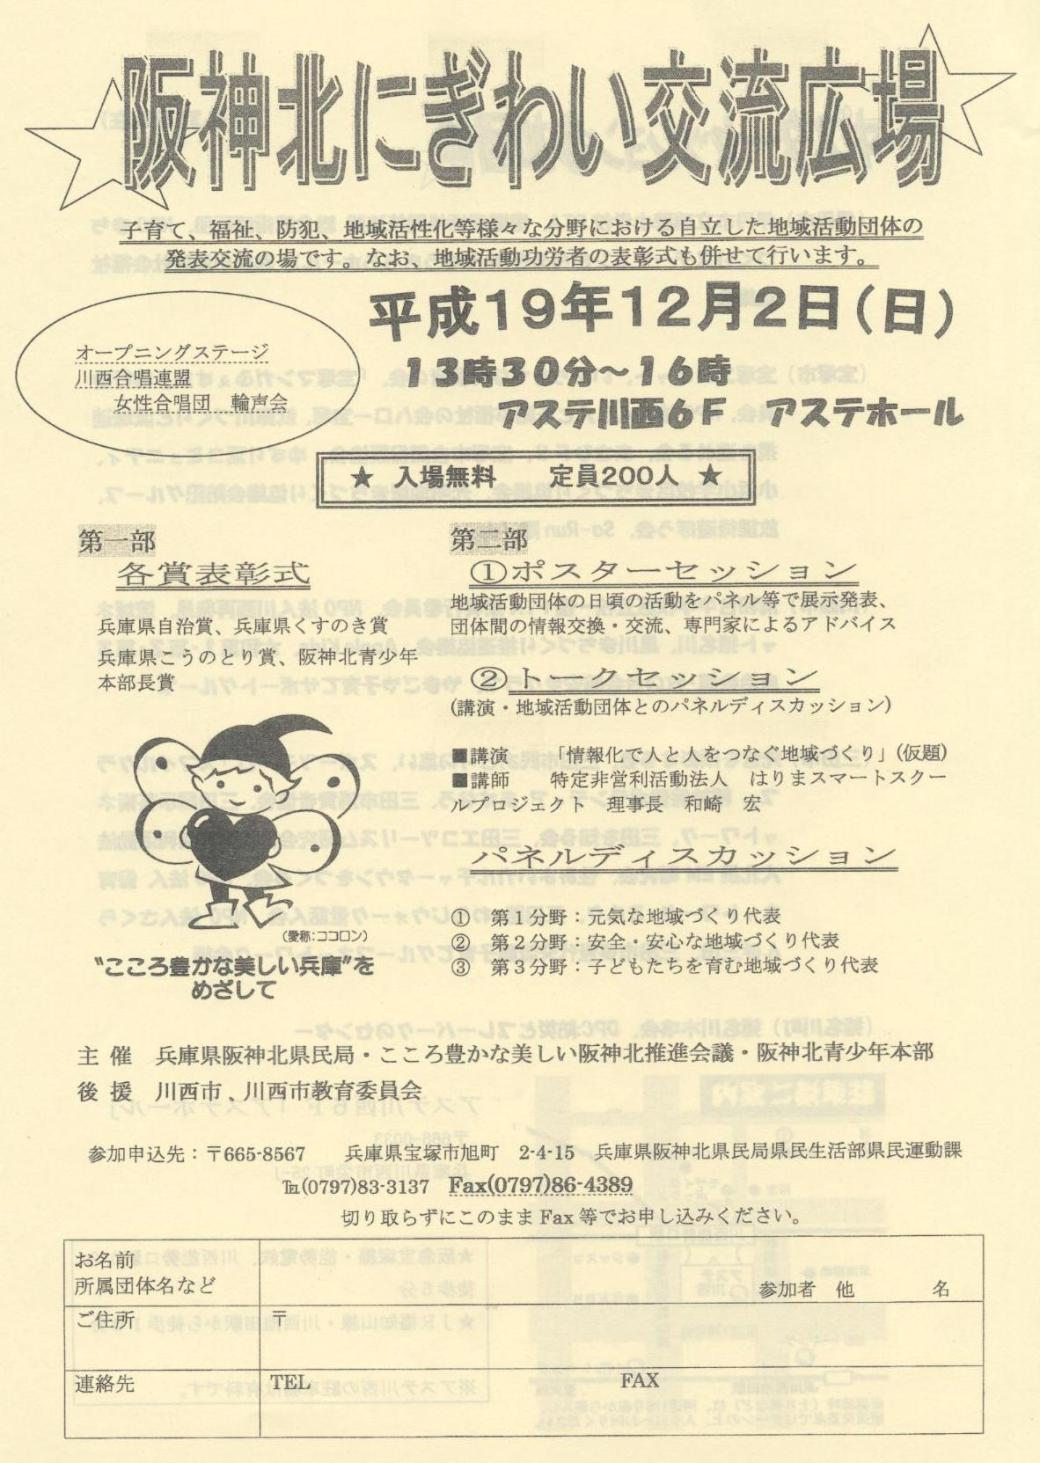 阪神北にぎわい交流広場
子育て、福祉、防犯、地域活性化等様々な分野における自立した地域活動団体の
発表交流の場です。なお、地域活動功労者の表彰式も併せて行います。
平成19年12月2日(日)
オープニングステージ
川西合唱連盟
女性合唱団 輪声会
13時30分～16時
アステ川西6F アステホール
★ 入場無料 定員200人 ★
第一部
各賞表彰式
兵庫県自治賞、兵庫県くすのき賞
兵庫県こうのとり賞、阪神北青少年
本部長賞
(愛称:ココロン)
"こころ豊かな美しい兵庫"を
めざして
第二部
①ポスターセッション
地域活動団体の日頃の活動をパネル等で展示発表、
団体間の情報交換・交流、専門家によるアドバイス
②トークセッション
(講演・地域活動団体とのパネルディスカッション)
■講演 「情報化で人と人をつなぐ地域づくり」(仮題)
■講師 特定非営利活動法人 はりまスマートスクー
ルプロジェクト 理事長 和崎 宏
パネルディスカッション
① 第1分野：元気な地域づくり代表
② 第2分野：安全・安心な地域づくり代表
③ 第3分野：子どもたちを育む地域づくり代表
主催 兵庫県阪神北県民局・こころ豊かな美しい阪神北推進会議・阪神北青少年本部
後援 川西市、川西市教育委員会
参加申込先：〒665-8567 兵庫県宝塚市旭町 2-4-15 兵庫県阪神北県民局県民生活部県民運動課
℡(0797)83-3137 Fax(0797)86-4389
切り取らずにこのまま Fax 等でお申し込みください。
お名前
所属団体名など
参加者 他 名
ご住所 〒
連絡先 TEL FAX